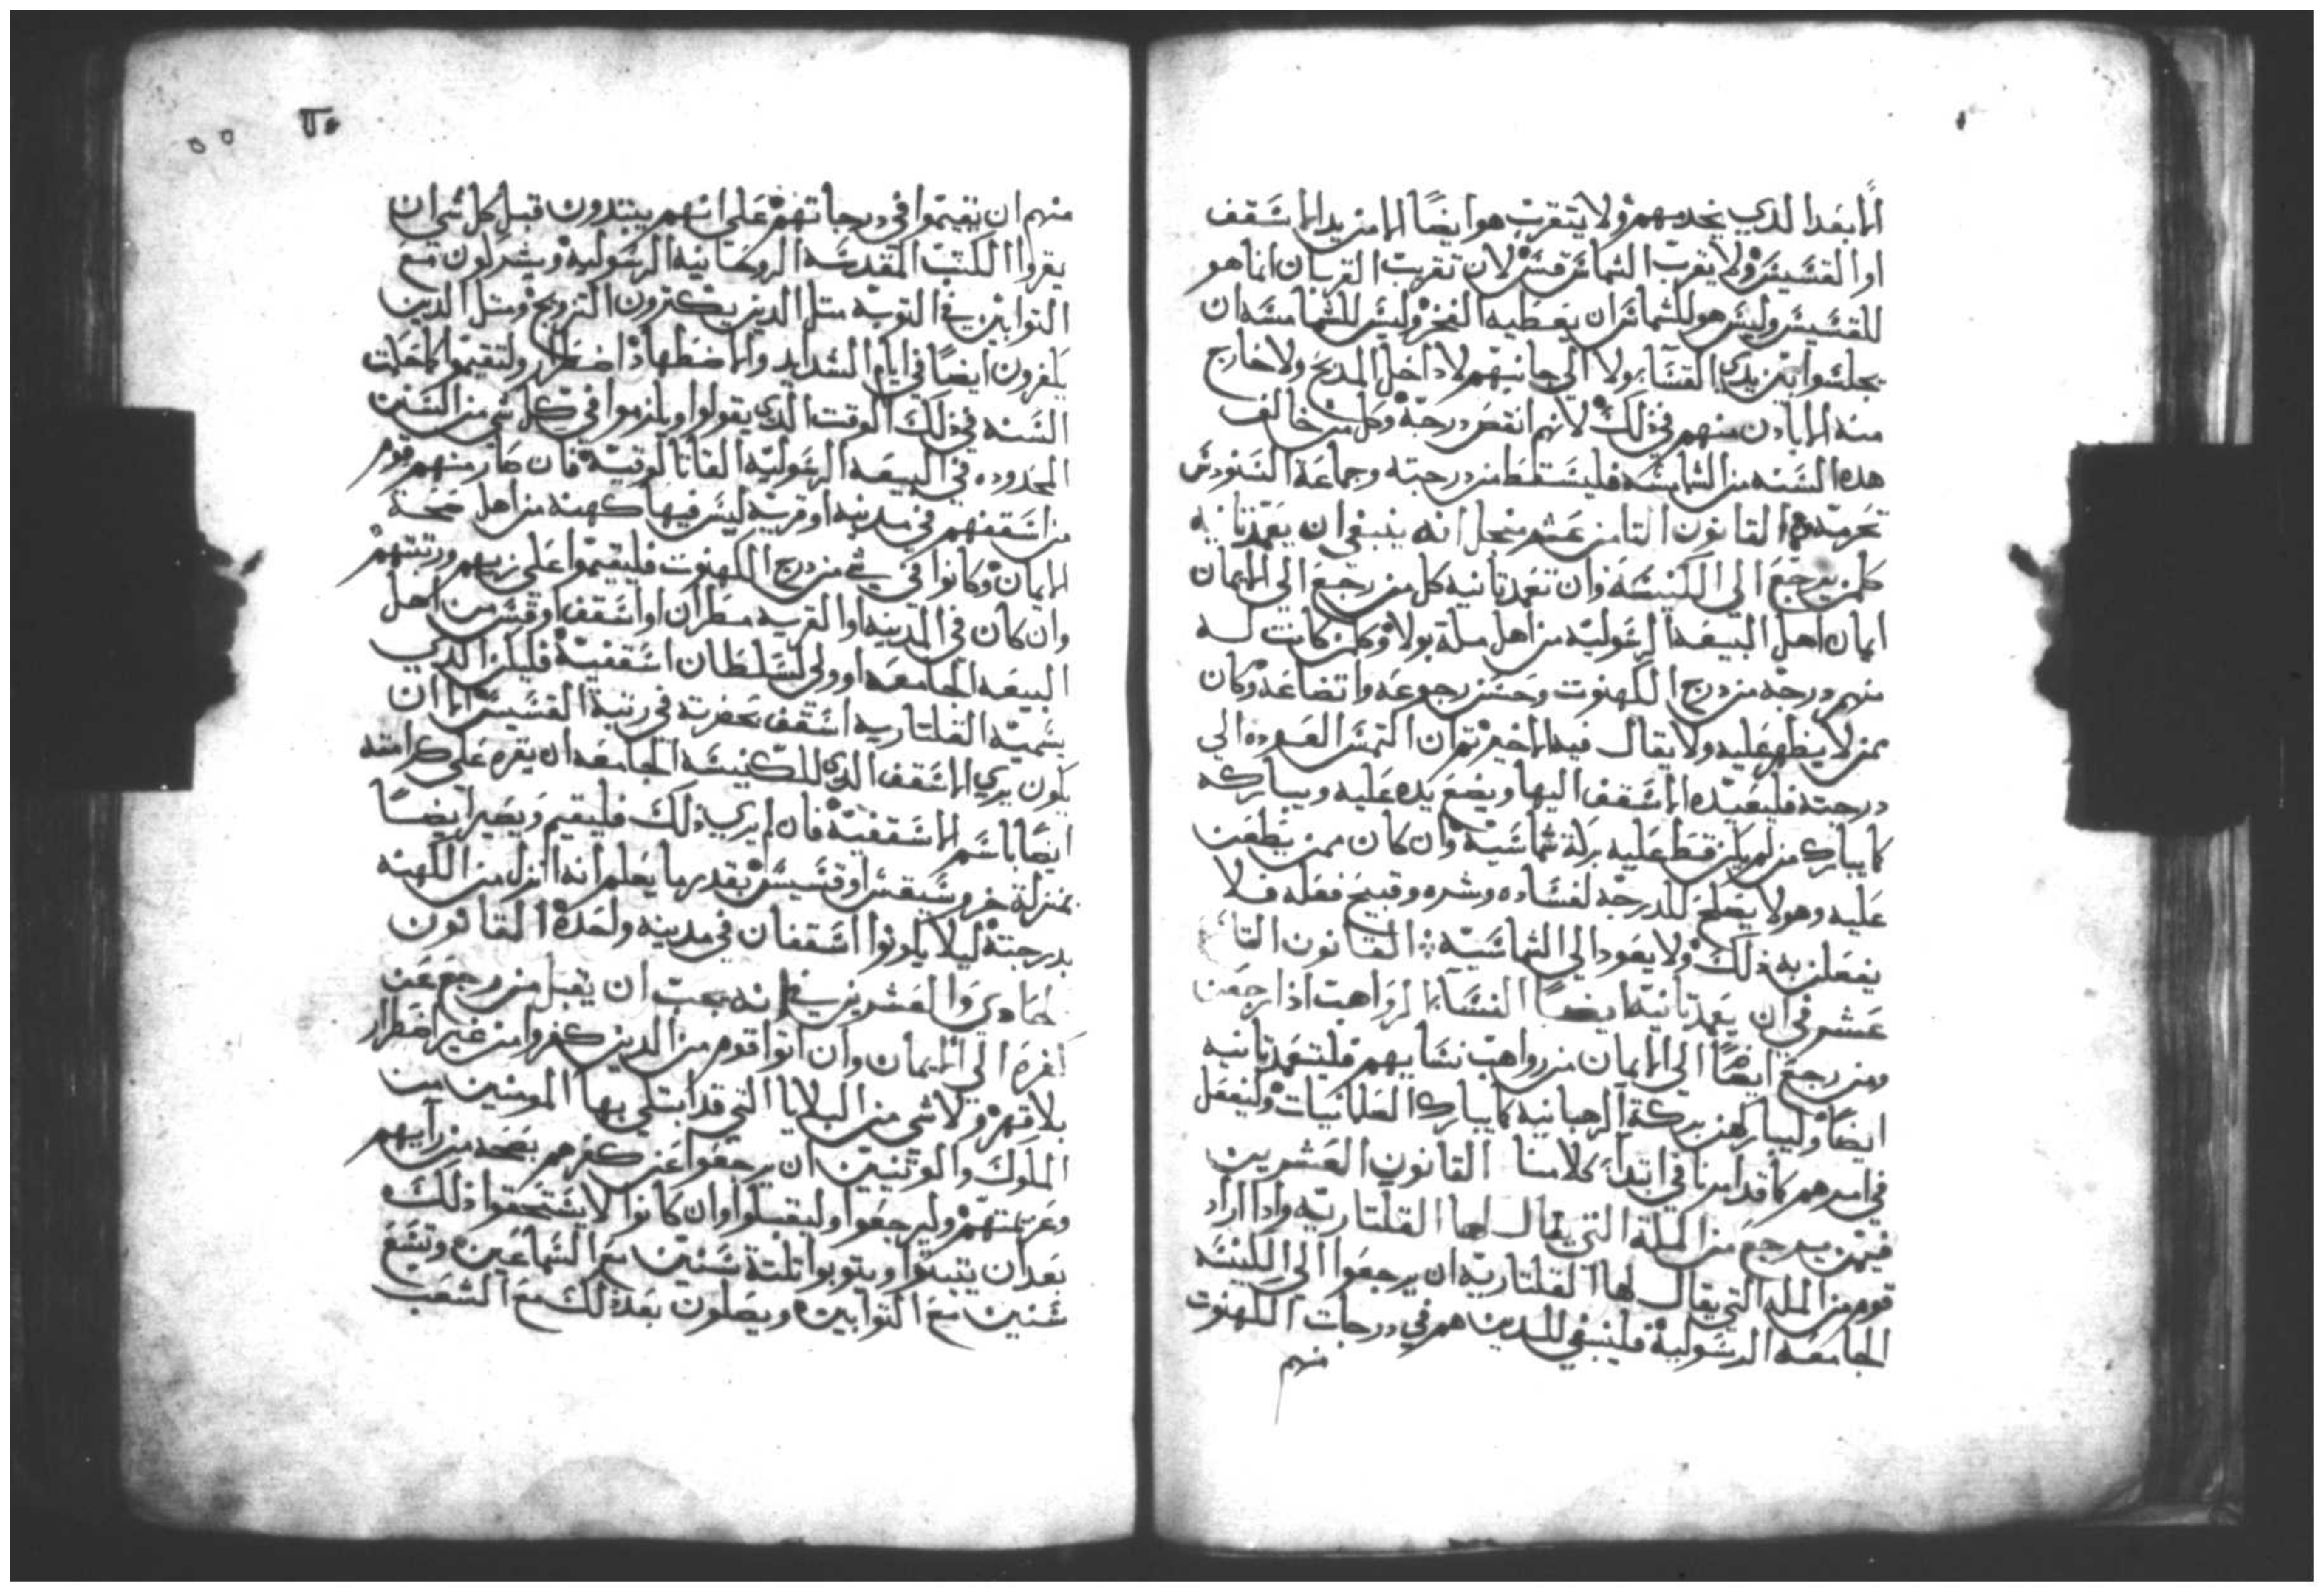 الا بعد الدي يخدمهم ولا يتقرب هو ايضًا الا من يد الاسقف
او القسيس ولا يقرب الشماس قس لان تقربت القربان انما هو
للقسيس وليس هو للشماس ان يعطيه الفخر وليس للشمامسه ان
يجلسوا بين يدي القسا ولا الي جانبهم لا داخل المدبح ولا خارج
منه الا بادن منهم في ذلك لانهم انقص درجة وكل من خالف
هده السنه من الشمامسه فليسقط من درجته وجماعة السنودس
تحرمه القانون التامن عشر منحل انه ينبغي ان يعمد تانيه
كلمن يرجع الي الكنيسه وان تعمد تانيه كل من رجع الي الايمان
ايمان اهل البيعه الرسوليه من اهل ملة بولا وكلمن كانت له
منهم درجه من درج الكهنوت وحسن رجوعه واتضاعه وكان
ممن لا يظهر عليه ولا يقال فيه الا خير تم ان التمس العوده الي
درجته فليعيده الاسقف اليها ويضع يده عليه ويباركه
كما يبارك من لم يكن قط عليه بركة شماسية وان كان ممن يطعن
عليه وهو لا يصلح للدرجه لفساده وشره وقبيح فعله فلا
يفعلن به ذلك ولا يعود الي الشماسيه القانون التا
عشر في ان يعمد تانيه ايضًا النسا الرواهب اذا رجعن
ومن رجع ايضًا الي الايمان من رواهب نسايهم فليتعمد تانيه
ايضًا وليباركهن بركة الرهبانيه كما يبارك العلمانيات وليفعل
في امرهم كما قد امرنا في ابتدا كلامنا القانون العشرين
فيمن يرجع من الملة التي يقال لها القلتاريه وادا اراد
قوم من الملة التي يقال لها القلتاريه ان يرجعوا الي الكنيسه
الجامعه الرسولية فلينبغي للدين هم في درجات الكهنوت
منهم
منهم ان يقيموا في درجاتهم علي انهم يبتدون قبل كل شي ان
يقروا الكتب المقدسه الروحانيه الرسوليه ويشركون مع
التوابين في التوبه متل الدين يكترون التزويج ومتل الدين
يكفرون ايضًا في ايام الشدايد والاضطهاد اضطرار ولتقيموا كما حلت
السنه في ذلك الوقت الدي يقولوا ويلزموا في كل شي من السنن
المحدوده في البيعه الرسوليه القاتالوقيه فان صار منهم قوم
من اسقفهم في مدينه او قريه ليس فيها كهنه من اهل صحة
الايمان وكانوا في شي من درج الكهنوت فليقيموا علي زيهم ورتبتهم
وان كان في المدينه او القريه مطران او اسقف او قس من اهل
البيعه الجامعه او ولي لسلطان اسقفية فليكن الدي
يسميه القلتاريه اسقف بحضرته في رتبة القسيس الا ان
يكون يري الاسقف الدي للكنيسه الجامعه ان يقره علي كرامته
ايضا باسم الاسقفية فان لم يري ذلك فليقيم ويصير ايضًا
بمنزلة خروسبقس او قسيس بقدر ما يعلم انه انزل من الكهنه
بدرجته ليلا يكونوا اسقفان في مدينه واحده القانون
الحادي والعشرين في انه يجب ان يقبل من رجع عن
كفره الي الايمان وان اتوا قوم من الدين كفروا من غير اضطرار
بلا قهر ولا شي من البلايا التي قد ابتلي بها المومنين من
الملوك والوتنيين ان يرجعوا عن كفرهم بصحه من رايهم
وعزيمتهم وليرجعوا وليقبلوا وان كانوا لا يستحقوا ذلك
بعد ان يتبتوا ويتوبوا تلتة سنين مع السماعين وتسع
سنين مع التوابين ويصلون بعد ذلك مع الشعب